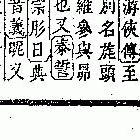 游俠傳至
別名旄頭
維參與昴
也又泰誓
宗肜日典
音義昵又